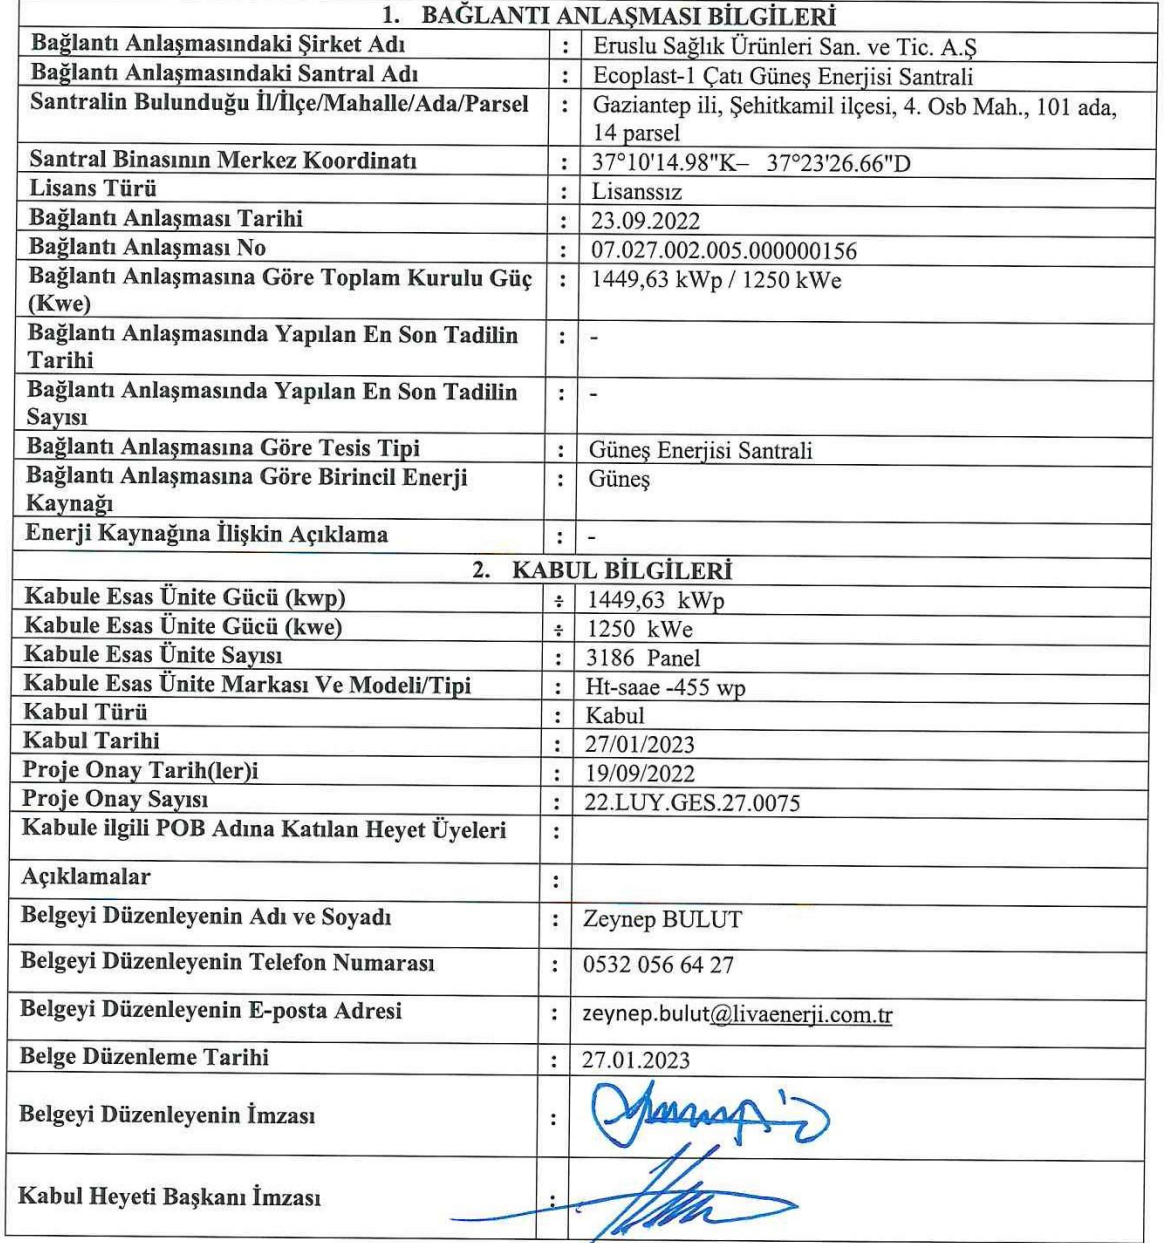 1. BAĞLANTI ANLAŞMASI BİLGİLERİ
Bağlantı Anlaşmasındaki Şirket Adı : Eruslu Sağlık Ürünleri San. ve Tic. A.Ş
Bağlantı Anlaşmasındaki Santral Adı : Ecoplast-1 Çatı Güneş Enerjisi Santrali
Santralin Bulunduğu İl/İlçe/Mahalle/Ada/Parsel : Gaziantep ili, Şehitkamil ilçesi, 4. Osb Mah., 101 ada,
14 parsel
Santral Binasının Merkez Koordinatı : 37°10'14.98"K– 37°23'26.66"D
Lisans Türü : Lisanssız
Bağlantı Anlaşması Tarihi : 23.09.2022
Bağlantı Anlaşması No : 07.027.002.005.000000156
Bağlantı Anlaşmasına Göre Toplam Kurulu Güç : 1449,63 kWp / 1250 kWe
(Kwe)
Bağlantı Anlaşmasında Yapılan En Son Tadilin : -
Tarihi
Bağlantı Anlaşmasında Yapılan En Son Tadilin : -
Sayısı
Bağlantı Anlaşmasına Göre Tesis Tipi : Güneş Enerjisi Santrali
Bağlantı Anlaşmasına Göre Birincil Enerji : Güneş
Kaynağı
Enerji Kaynağına İlişkin Açıklama : -
2. KABUL BİLGİLERİ
Kabule Esas Ünite Gücü (kwp) ÷ 1449,63 kWp
Kabule Esas Ünite Gücü (kwe) ÷ 1250 kWe
Kabule Esas Ünite Sayısı : 3186 Panel
Kabule Esas Ünite Markası Ve Modeli/Tipi : Ht-saae -455 wp
Kabul Türü : Kabul
Kabul Tarihi : 27/01/2023
Proje Onay Tarih(ler)i : 19/09/2022
Proje Onay Sayısı : 22.LUY.GES.27.0075
Kabule ilgili POB Adına Katılan Heyet Üyeleri :
Açıklamalar :
Belgeyi Düzenleyenin Adı ve Soyadı : Zeynep BULUT
Belgeyi Düzenleyenin Telefon Numarası : 0532 056 64 27
Belgeyi Düzenleyenin E-posta Adresi : zeynep.bulut@livaenerji.com.tr
Belge Düzenleme Tarihi : 27.01.2023
Belgeyi Düzenleyenin İmzası :
Kabul Heyeti Başkanı İmzası :